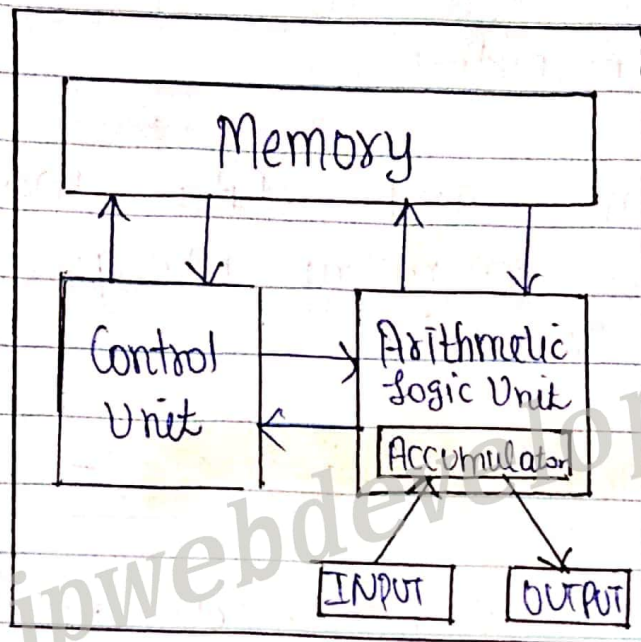 Memory
Control
Unit
Arithmetic
Logic Unit
Accumulator
INPUT
OUTPUT